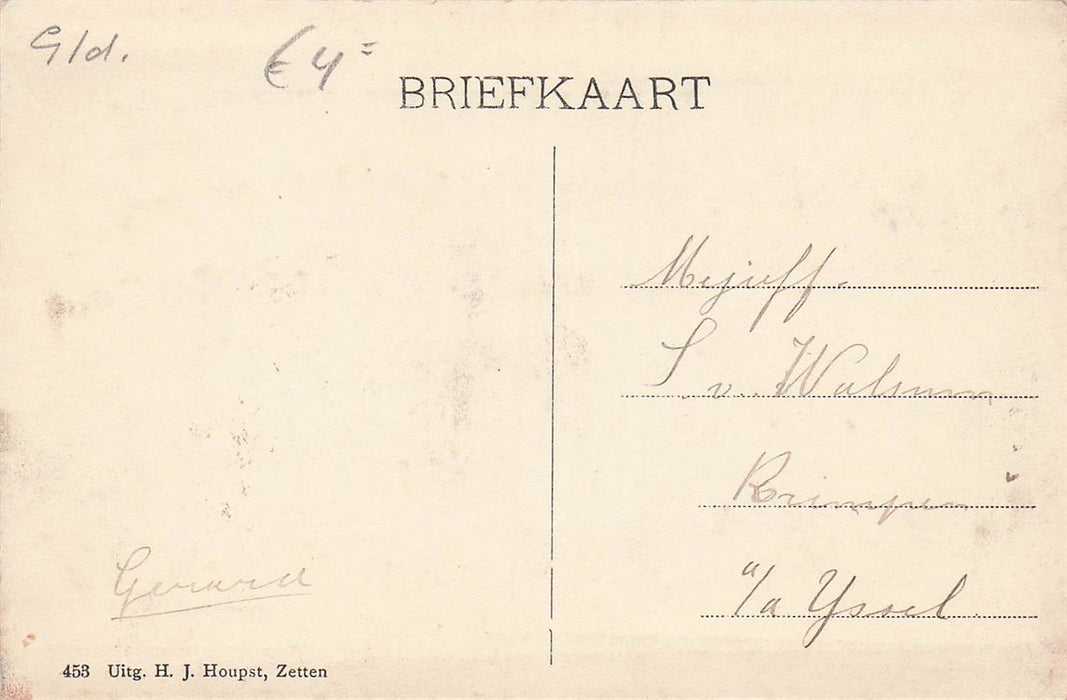 Gld.
€ 4=
BRIEFKAART
Mejuff.
S v. Walsum
Krimpen
a/a Yssel
Gerard
453 Uitg. H. J. Houpst, Zetten